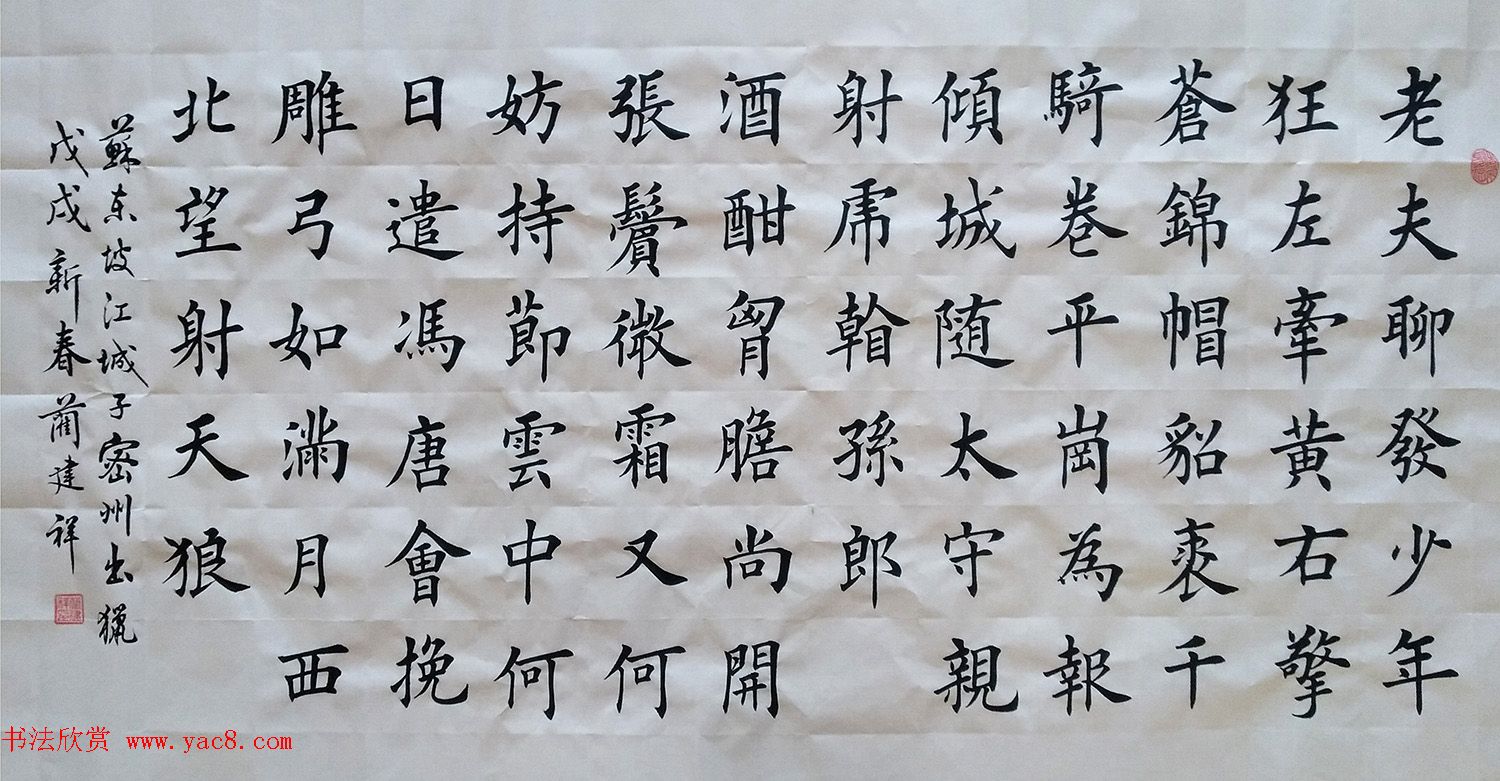 老夫聊發少年
狂左牽黃右擎
蒼錦帽貂裘千
騎卷平崗為報
傾城随太守親
射虎看孫郎
酒酣胷膽尚開
張鬢微霜又何
妨持節雲中何
日遣馮唐會挽
雕弓如滿月西
北望射天狼
蘇東坡江城子密州出獵
戊戌新春藺建祥
书法欣赏 www.yac8.com